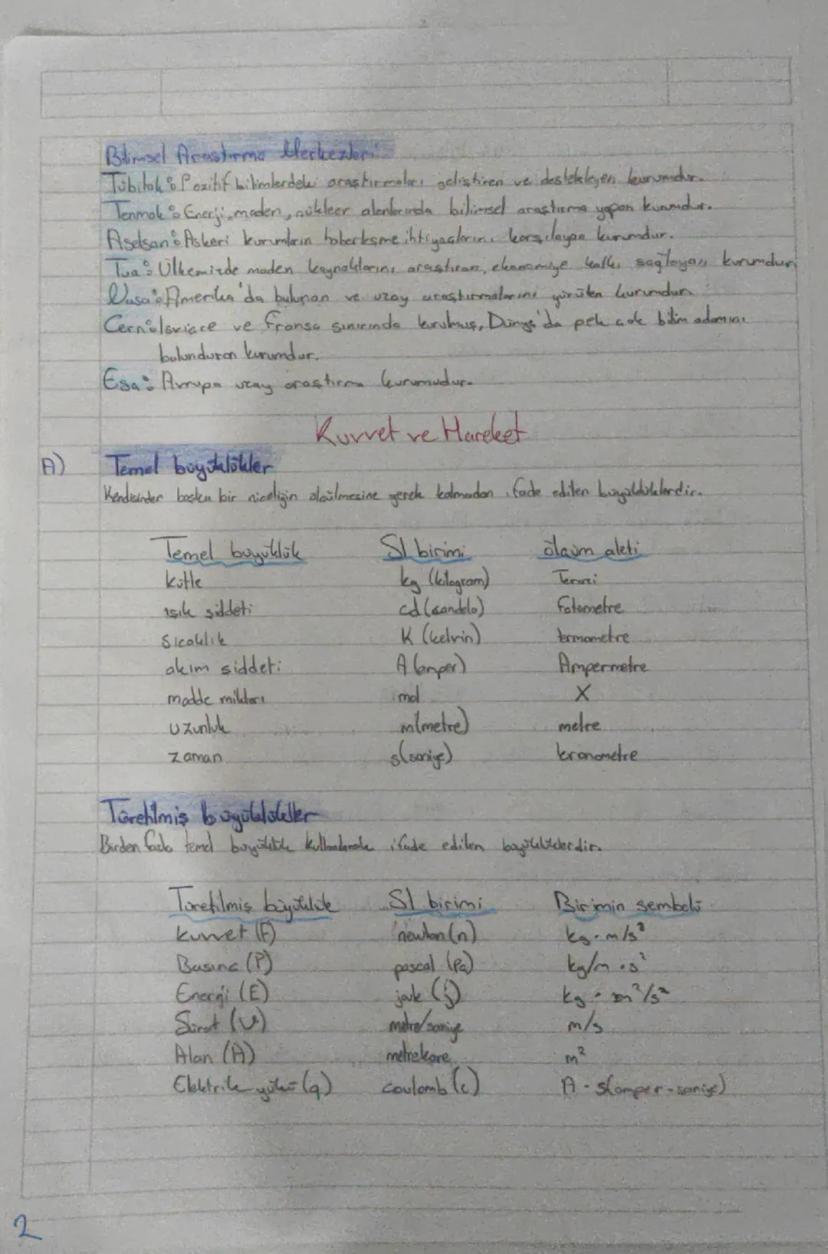 Bilimsel Araştırma Merkezleri
Tübitak: Pozitif bilimlerdeki araştırmaları geliştiren ve destekleyen kurumdur.
Tenmak: Enerji, maden, nükleer alanlarında bilimsel araştırma yapan kurumdur.
Aselsan: Askeri kurumların haberleşme ihtiyaçlarını karşılayan kurumdur.
Tua: Ülkemizde maden kaynaklarını araştıran, ekonomiye katkı sağlayan kurumdur
Nasa: Amerika'da bulunan ve uzay araştırmalarını yürüten kurumdur.
Cern: İsviçre ve Fransa sınırında kurulmuş, Dünya'da pek çok bilim adamını
bulunduran kurumdur.
Esa: Avrupa uzay araştırma kurumudur.
Kuvvet ve Hareket
A) Temel büyüklükler
Kendisinden başka bir niceliğin ölçülmesine gerek kalmadan ifade edilen büyüklüklerdir.
Temel büyüklük SI birimi ölçüm aleti
kütle kg (kilogram) Terazi
ışık şiddeti cd (candela) Fotometre
sıcaklık K (kelvin) termometre
akım şiddeti A (amper) Ampermetre
madde miktarı mol X
uzunluk m(metre) metre
zaman s(saniye) kronometre
Türetilmiş büyüklükler
Birden fazla temel büyüklük kullanılarak ifade edilen büyüklüklerdir.
Türetilmiş büyüklük SI birimi Birimin sembolü
kuvvet (F) newton (n) kg · m/s²
Basınç (P) pascal (Pa) kg/m · s²
Energi (E) joule (j) kg · m²/s²
Sürat (v) metre/saniye m/s
Alan (A) metrekare m²
Elektrik yükü (q) coulomb (c) A · s(amper-saniye)
2